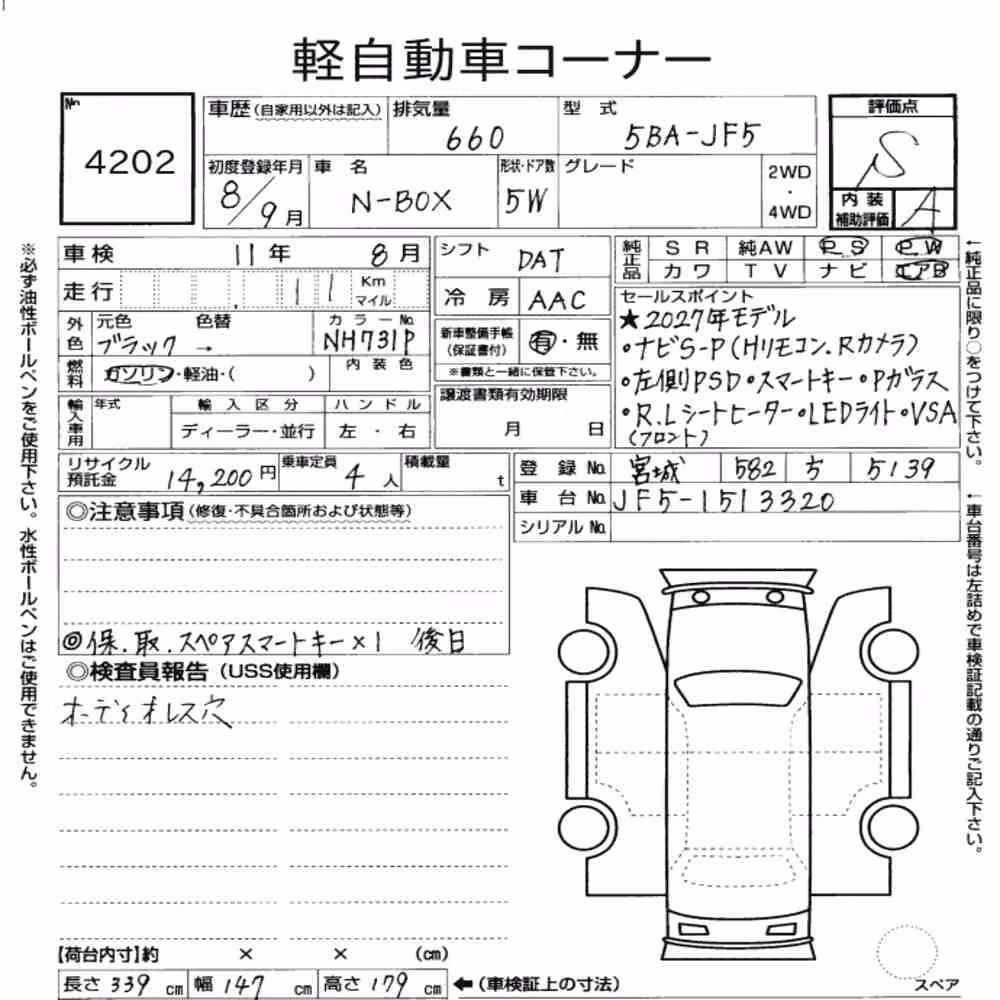 軽自動車コーナー
No
4202
車歴(自家用以外は記入)
排気量
660
型 式
5BA-JF5
評価点
S
初度登録年月
8/9月
車 名
N-BOX
形状・ドア数
5W
グレード
2WD
・
4WD
内 装
補助評価
A
車検 11年 8月
シフト DAT
純正品
SR 純AW PS PW
カワ TV ナビ エアB
走行 11 Km マイル
冷 房 AAC
セールスポイント
★2027年モデル
・ナビS-P(Hリモコン.Rカメラ)
・左側PSD・スマートキー・Pガラス
・R.Lシートヒーター・LEDライト・VSA
(フロント)
外色
元色 色替 カラーNo.
ブラック → NH731P
新車整備手帳
(保証書付)
有・無
※書類と一緒に保管下さい。
燃料
ガソリン・軽油・( )
内 装 色
譲渡書類有効期限
月 日
輸入車用
年式
輸 入 区 分
ハ ン ド ル
ディーラー・並行
左 ・ 右
リサイクル預託金 14,200円
乗車定員 4人
積載量 t
登 録 No. 宮城 582 ち 5139
車 台 No. JF5-1513320
シリアル No.
◎注意事項(修復・不具合箇所および状態等)
◎保.取.スペアスマートキー×1 後日
◎検査員報告(USS使用欄)
オーディオレス穴
【荷台内寸】約 × × (cm)
長さ 339 cm 幅 147 cm 高さ 179 cm
←(車検証上の寸法)
スペア
※必ず油性ボールペンをご使用下さい。水性ボールペンはご使用できません。
←純正品に限り○をつけて下さい。
←車台番号は左詰めで車検証記載の通りご記入下さい。